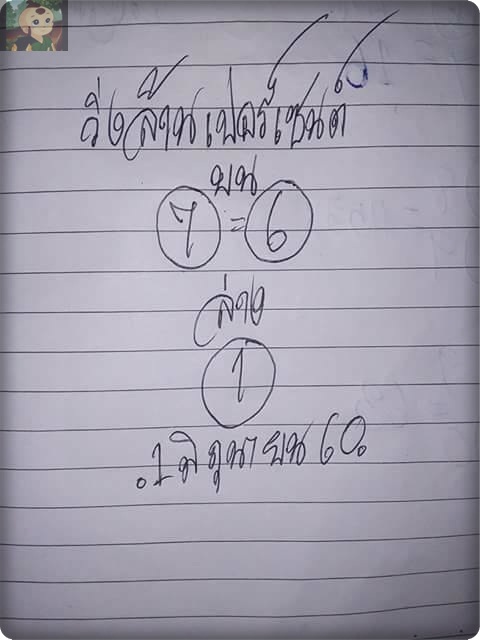 วิ่งล้านเปอร์เซ็นต์
บน
7 = 6
ล่าง
1
1 มิถุนายน 60